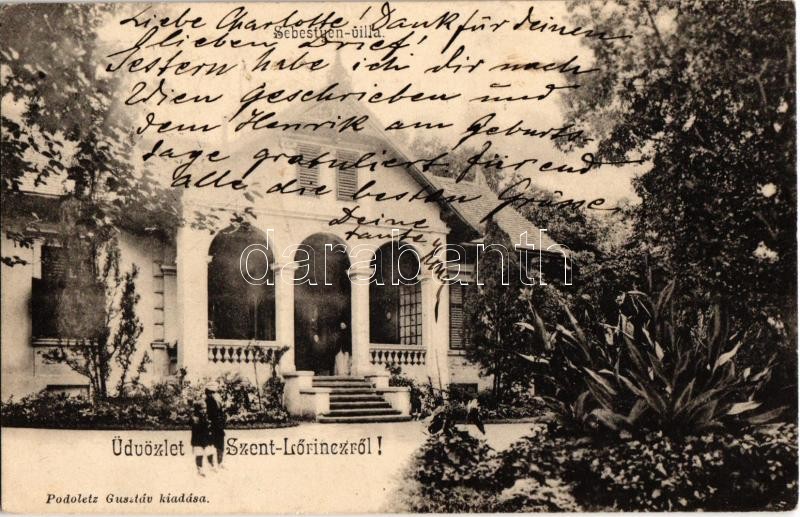 Liebe Charlotte! Dank für deinen
Sebestyén-villa.
lieben Brief!
Gestern habe ich dir nach
Wien geschrieben und
dem Henrik am Geburts
tage gratuliert für end
alle die besten Grüsse
Deine
tante
darabanth
Üdvözlet Szent-Lőrinczről!
Podoletz Gusztáv kiadása.